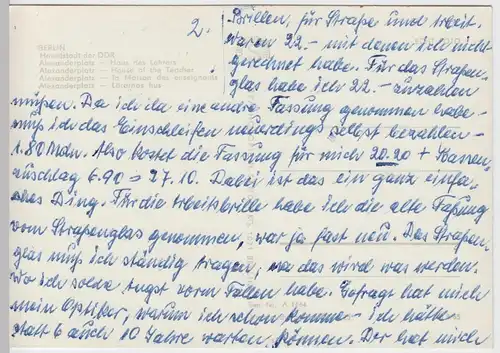 2.
BERLIN
Hauptstadt der DDR
Alexanderplatz – Haus des Lehrers
Alexanderplatz – House of the Teacher
Alexanderplatz – La Maison des enseignants
Alexanderplatz – Lärarnas hus
Brillen, für Straße und Arbeit-
waren 22.- mit denen ich nicht
gerechnet habe. Für das Straßen-
glas habe ich 22.- zuzahlen
müssen. Da ich da eine andre Fassung genommen habe-
muß ich das Einschleifen neuerdings selbst bezahlen-
1.80 Mdn. Also kostet die Fassung für mich 20.20 + Kassen-
zuschlag 6.90 = 27.10. Dabei ist das ein ganz einfa-
ches Ding. Für die Arbeitsbrille habe ich die alte Faßung
vom Straßenglas genommen, war ja fast neu. Das Straßen-
glas muß ich ständig tragen, das wird was werden.
Wo ich solche Angst vorm Fallen habe. Gefragt hat mich
mein Optiker, warum ich schon komme - ich hätte
statt 6 auch 10 Jahre warten können. Der hat mich